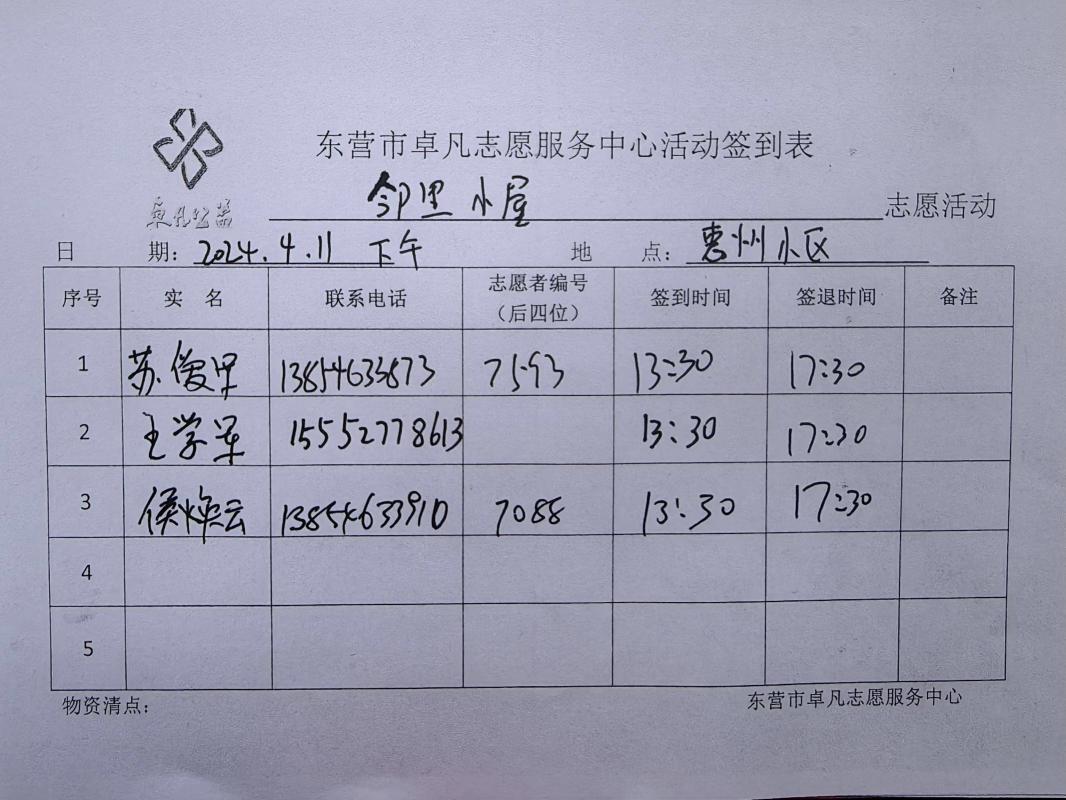 东营市卓凡志愿服务中心活动签到表
卓凡公益
邻里小屋 志愿活动
日期：2024.4.11 下午 地点：惠州小区
序号 实名 联系电话 志愿者编号（后四位） 签到时间 签退时间 备注
1 苏俊果 13854633873 7593 13:30 17:30
2 王学军 15552778613 13:30 17:30
3 侯焕云 13854633910 7088 13:30 17:30
4
5
物资清点： 东营市卓凡志愿服务中心